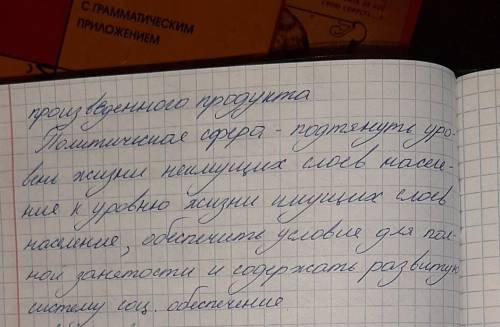 С ГРАММАТИЧЕСКИМ
ПРИЛОЖЕНИЕМ
произведенного продукта
Политическая сфера - подтянуть уро-
вень жизни неимущих слоев населе-
ние к уровню жизни имущих слоев
население, обеспечить условие для пол-
ной занетости и содержать развитую
систему соц. обеспечение.